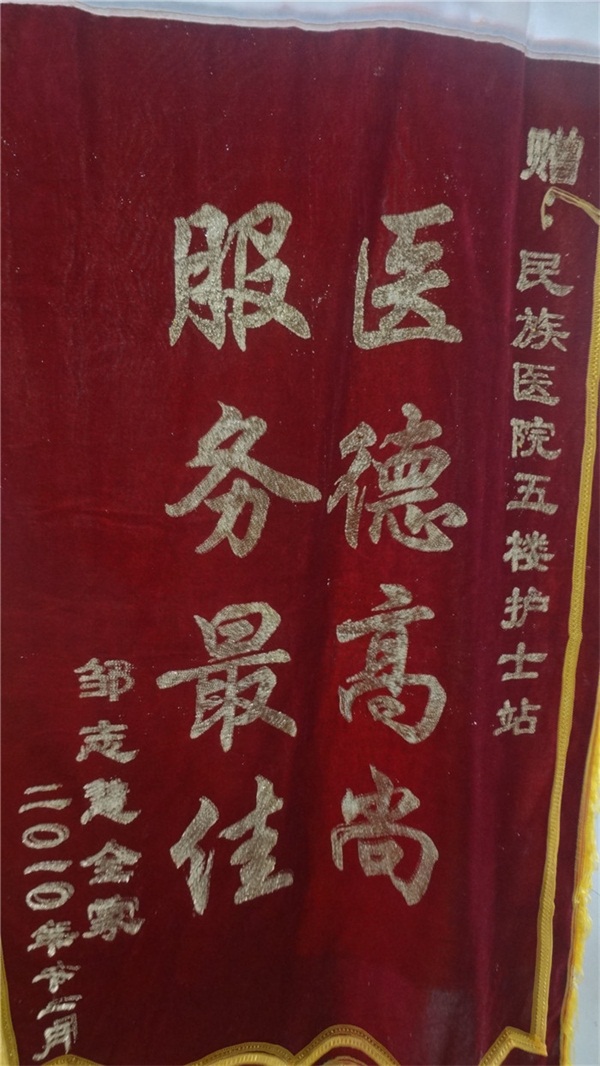 赠：民族医院五楼护士站
医德高尚
服务最佳
邹志慧全家
二〇一〇年十二月